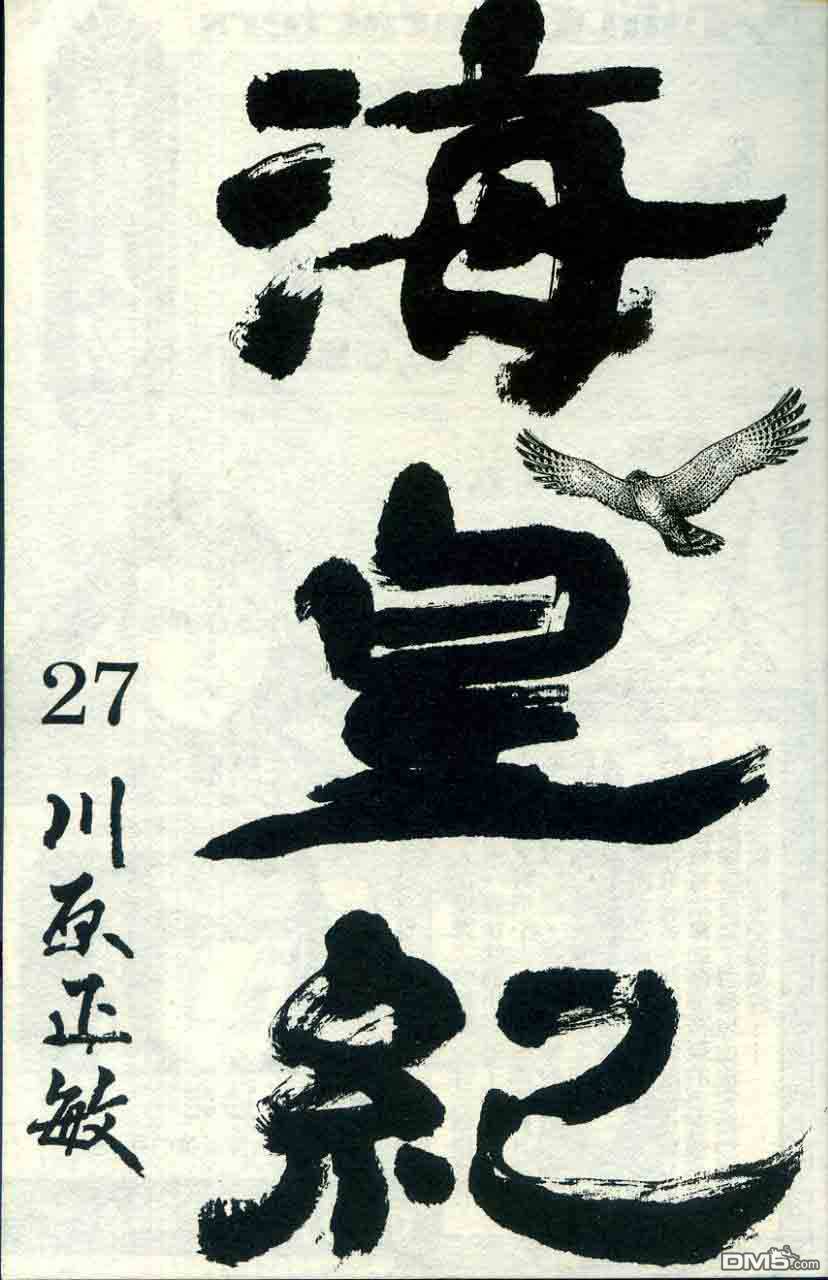 海皇紀
27
川原正敏
DM5.com